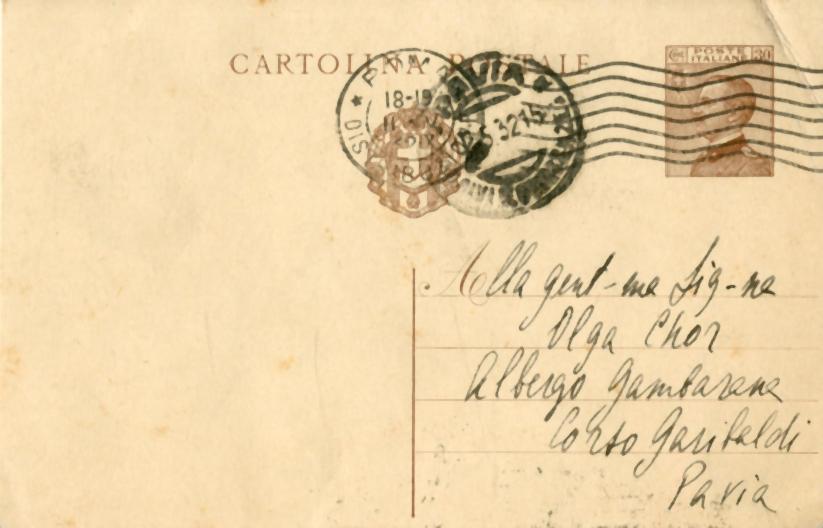 CARTOLINA POSTALE
POSTE
ITALIANE
30
PAVIA
18-19
5 32 15
Alla gent-ma Sig-na
Olga Chor
Albergo Gambarana
Corso Garibaldi
Pavia